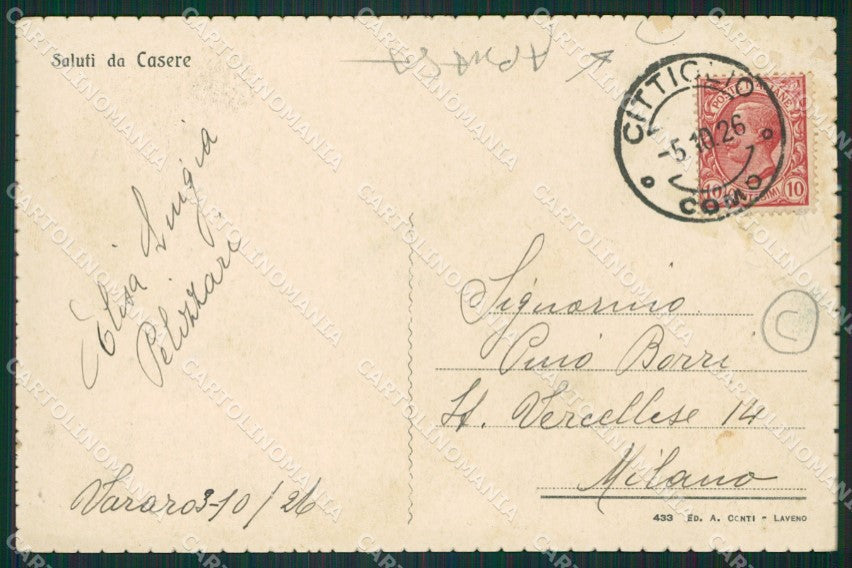 Saluti da Casere
CITTIGLIO
-5.10.26
COMO
POSTE ITALIANE
10 CENTESIMI 10
Elisa Luigia
Pelizzari
Signorino
Pino Borri
St. Vercellese 14
Milano
Vararo 3-10/26
433 ED. A. CONTI - LAVENO
U
CARTOLINOMANIA